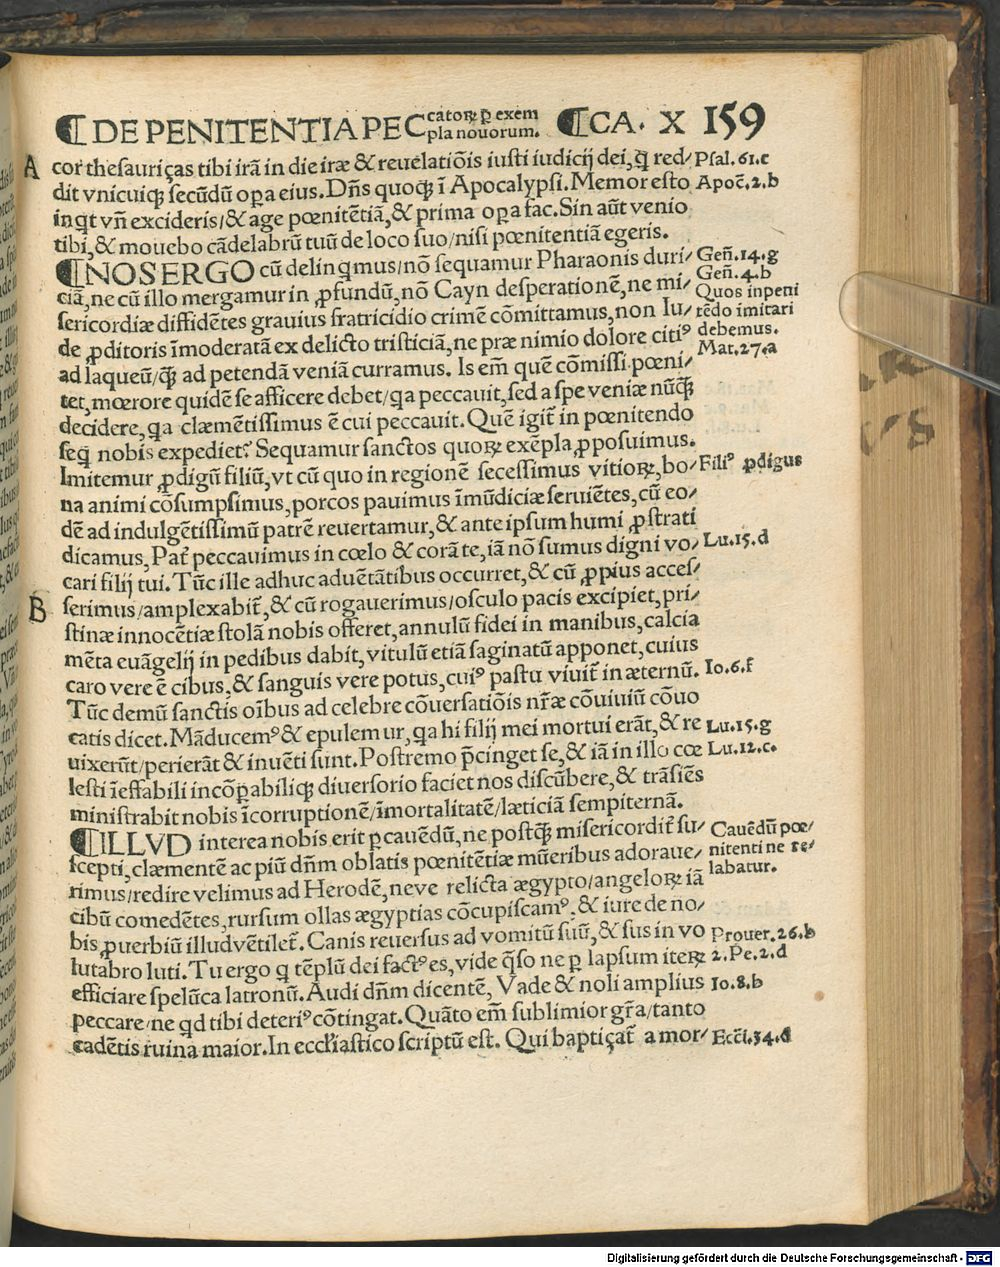 ¶ DE PENITENTIA PECcatoꝝ ꝑ exempla nouorum. ¶ CA. X 159
A cor thesauriças tibi irā in die iræ & reuelatiōis iusti iudicij dei, q̄ red/ Psal. 61.c
dit vnicuiqꝫ secūdū oꝑa eius. Dn̄s quoqꝫ ī Apocalypsi. Memor esto Apoc̄. 2.b
inq̇t vn̄ excideris/& age pœnitētiā, & prima oꝑa fac. Sin aūt venio
tibi, & mouebo cādelabrū tuū de loco suo/nisi pœnitentiā egeris.
¶ NOS ERGO cū delinq̇mus/nō sequamur Pharaonis duri/ Gen̄. 14.g
ciā, ne cū illo mergamur in ꝓfundū, nō Cayn desperationē, ne mi/ Gen̄. 4.b
Quos in peni
sericordiæ diffidētes grauius fratricidio crimē cōmittamus, non Iu/ tēdo imitari
de ꝓditoris īmoderatā ex delicto tristiciā, ne præ nimio dolore citiꝰ debemus.
Mat. 27.a
ad laqueū/qꝫ̄ ad petendā veniā curramus. Is em̄ quē cōmissi pœni/
tet, mœrore quidē se afficere debet/q̇a peccauit, sed a spe veniæ nūqꝫ̄
decidere, q̇a clæmētissimus ē cui peccauit. Quē igit̄ in pœnitendo
seq̇ nobis expediet? Sequamur sanctos quoꝝ exēpla ꝓposuimus.
Imitemur ꝓdigū filiū, vt cū quo in regionē secessimus vitioꝝ, bo/ Filiꝰ ꝓdigus
na animi cōsumpsimus, porcos pauimus īmūdiciæ seruiētes, cū eo/
dē ad indulgētissimū patrē reuertamur, & ante ipsum humi ꝓstrati
dicamus, Pat̄ peccauimus in cœlo & corā te, iā nō sumus digni vo/ Lu. 15.d
cari filij tui. Tūc ille adhuc aduētātibus occurret, & cū ꝓpius acces/
B serimus/amplexabit̄, & cū rogauerimus/osculo pacis excipiet, pri/
stinæ innocētiæ stolā nobis offeret, annulū fidei in manibus, calcia
mēta euāgelij in pedibus dabit, vitulū etiā saginatū apponet, cuius
caro vere ē cibus, & sanguis vere potus, cuiꝰ pastu viuit̄ in æternū. Io. 6.f
Tūc demū sanctis oībus ad celebre cōuersatiōis nr̄æ cōuiuiū cōuo
catis dicet. Māducemꝰ & epulemur, q̇a hi filij mei mortui erāt, & re Lu. 15.g
uixerūt/perierāt & inuēti sunt. Postremo p̄cinget se, & iā in illo cœ Lu. 12.c.
lesti īeffabili incōꝑabiliqꝫ diuersorio faciet nos discūbere, & trāsiēs
ministrabit nobis īcorruptionē/īmortalitatē/læticiā sempiternā.
¶ ILLVD interea nobis erit ꝑcauēdū, ne postqꝫ̄ misericordit̄ su/ Cauēdū pœ/
scepti, clæmentē ac piū dn̄m oblatis pœnitētiæ mūeribus adoraue/ nitenti ne re/
rimus/redire velimus ad Herodē, neve relicta ægypto/angeloꝝ iā labatur.
cibū comedētes, rursum ollas ægyptias cōcupiscamꝰ, & iure de no/
bis ꝓuerbiū illud vētilet̄. Canis reuersus ad vomitū suū, & sus in vo Prouer. 26.b
lutabro luti. Tu ergo q̇ tēplū dei factꝰ es, vide q̄so ne ꝑ lapsum iteꝝ 2. Pe. 2.d
efficiare spelūca latronū. Audi dn̄m dicentē, Vade & noli amplius Io. 8.b
peccare/ne q̇d tibi deteriꝰ cōtingat. Quāto em̄ sublimior gr̄a/tanto
cadētis ruina maior. In eccl̄iastico scriptū est. Qui baptiçat̄ a mor/ Ecc̄i. 34.d
Digitalisierung gefördert durch die Deutsche Forschungsgemeinschaft - DFG